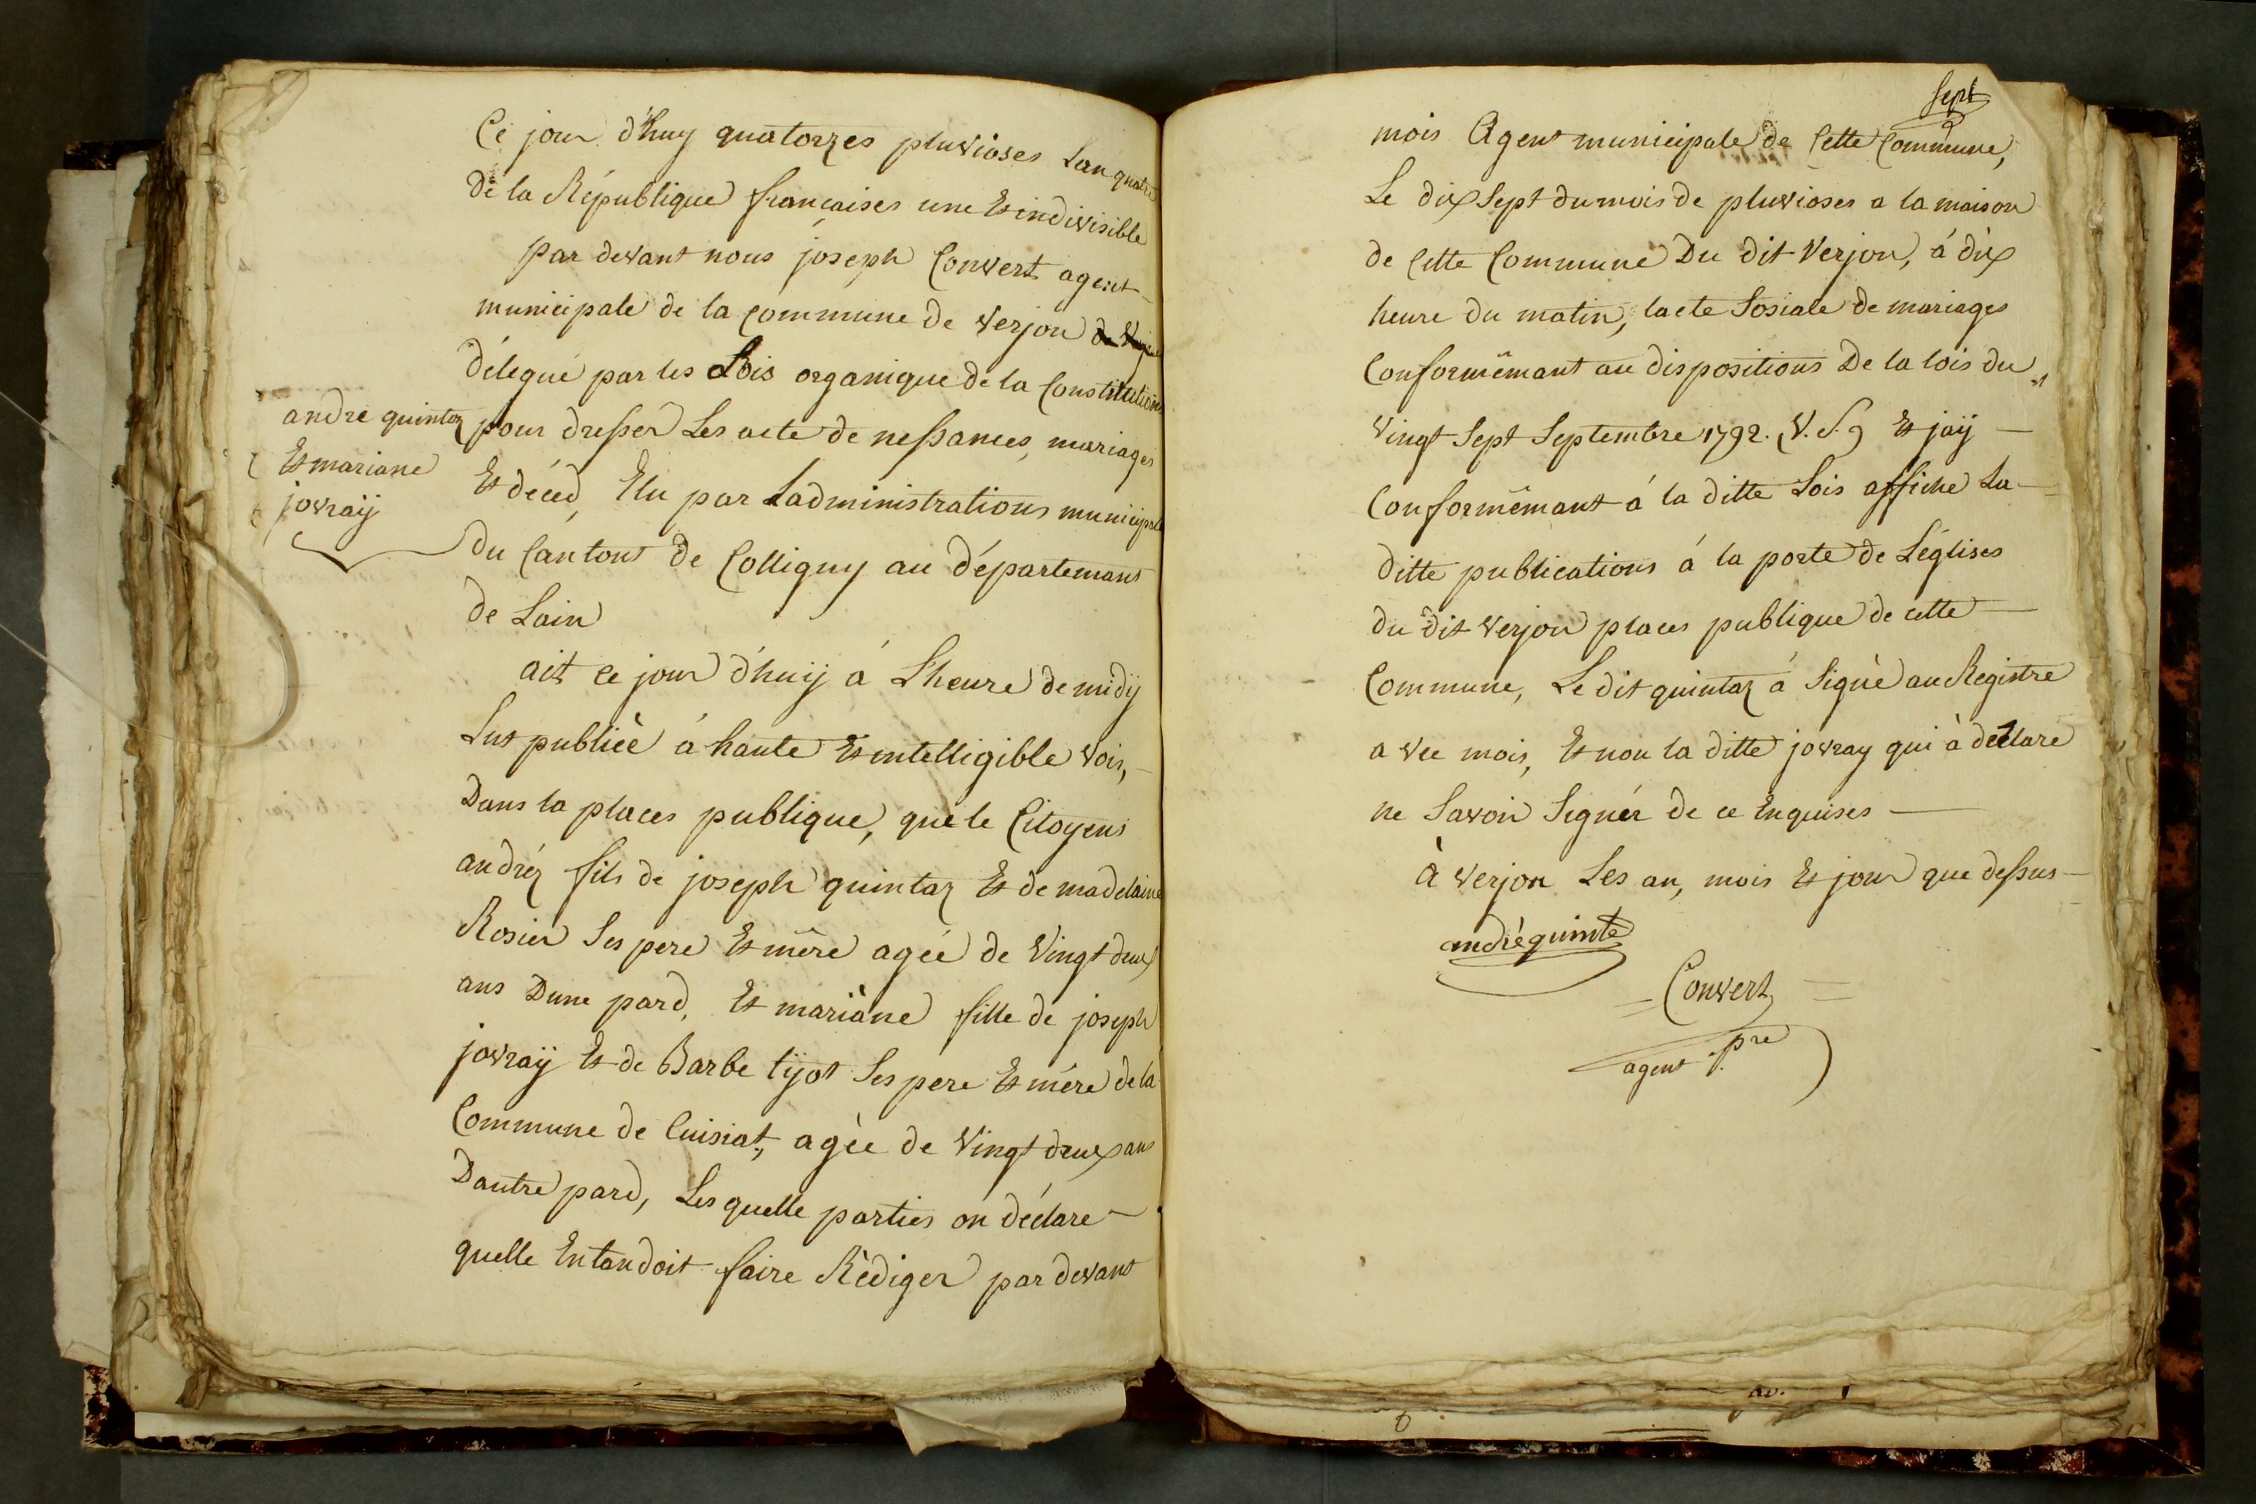 Ce jour d'huy quatorzes pluvioses Lan quatre
De la République françaises une Et indivisible
par devant nous joseph Convert agent
municipale de la commune de verjon
délegué par les Lois organique de la Constitutions
andre quintaz
Et mariane
jovraÿ
pour dresser Les acte de nessances, mariages
Et déced, Elu par Ladministrations municipale
du Cantons de Colligny au départemans
de Lain
ait ce jour d'huÿ á L'heure de midÿ
Lut publièè á haute Et intelligible vois,
Dans la places publique, que le Citoyens
andréz fils de joseph quintaz Et de madelaine
Rosier Ses pere Et mêre agéé de Vingt deux
ans Dune pard, Et mariàne fille de joseph
jovraÿ Et de Barbe tijot Ses pere Et mére de la
Commune de Cuisiat, agèe de Vingt deux ans
Dautre pard, Les quelle parties on déclare
quelle Entandoit faire Rèdiger par devant
Sept
mois Agent municipale de Cette Commune,
Le dix Sept du mois de pluvioses a la maison
de Cette Commune Du dit Verjon, á dix
heure du matin, lacte Sosiale de mariages
Conformêmant au dispositions De la lois du
Vingt Sept Septembre 1792. V. S. Et jaÿ
Conformêmant á la ditte Lois affiche La
ditte publications á la porte de Léglises
du dit verjon places publique de cette
Commune, Le dit quintaz á Signè au Registre
a vec mois, Et non la ditte jovray qui à declare
ne Savoir Signér de ce Enquises
À verjon Les an, mois Et jour que dessus
andrèquinte
Convert
agent pre